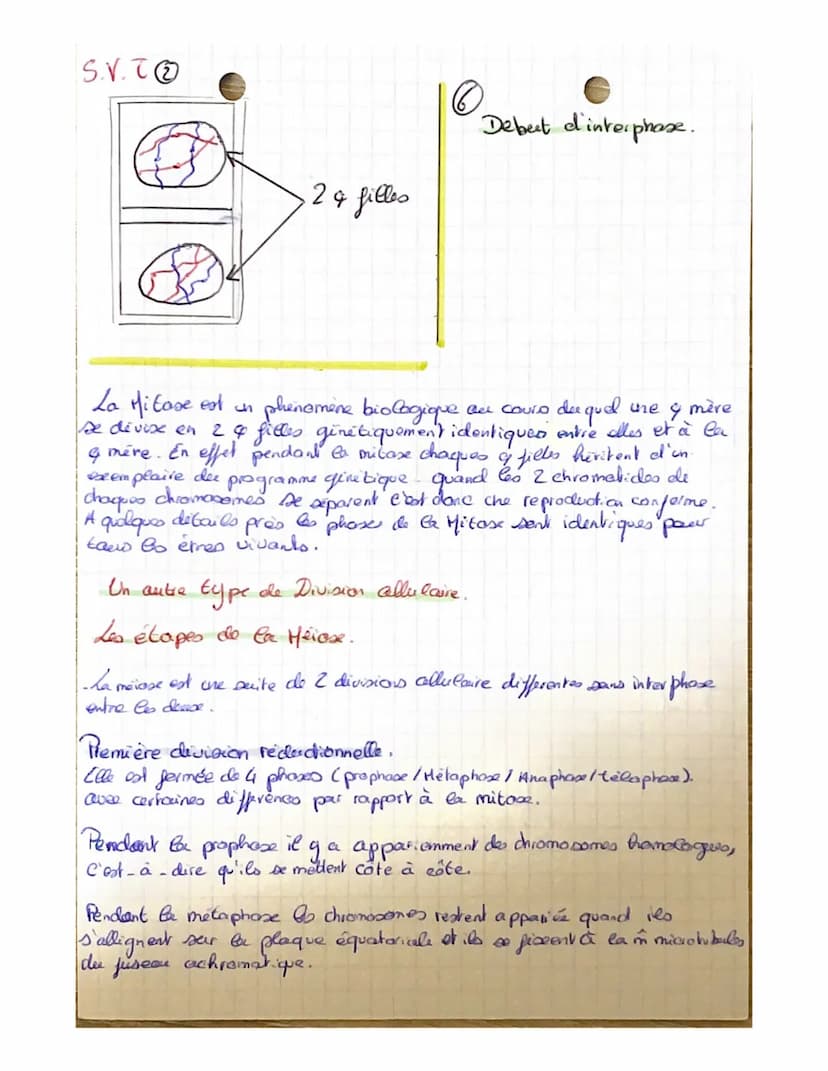 S.V.T ②
2 φ filles
⑥
Debeut d'interphase.
La Mitose est un phénomène biologique au cours duquel une φ mère
se divise en 2 φ filles génétiquement identiques entre elles et à la
φ mère. En effet pendant la mitose chaques φ filles héritent d'un
exemplaire du programme génétique quand les 2 chromatides de
chaques chromosomes se séparent c'est donc une reproduction conforme.
A quelques détails près les phases de la Mitose sont identiques pour
tous les êtres vivants.
Un autre type de Division cellulaire.
Les étapes de la Méiose.
- La méiose est une suite de 2 divisions cellulaire differentes sans interphase
entre les deux.
Première division réductionnelle.
Elle est formée de 4 phases (prophase / Métaphase / Anaphase / télophase).
avec certaines différences par rapport à la mitose.
Pendant la prophase il y a appariemment des chromosomes homologues,
C'est-à-dire qu'ils se mettent côte à côte.
Pendant la métaphase les chromosomes restent appariés quand ils
s'allignent sur la plaque équatoriale et ils se fixent à la m̂ microtubules
du fuseau achromatique.